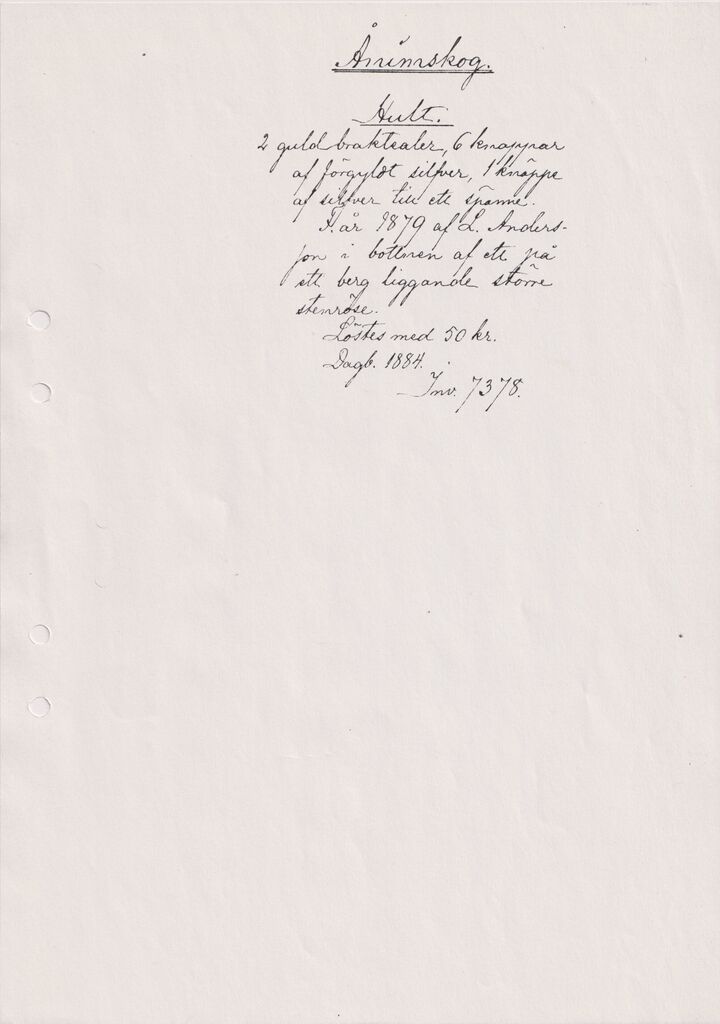 Ånimskog.
Hult.
2 guldbrakteater, 6 knappar
af förgyldt silfver, 1 knäppe
af silfver till ett spänne.
F. år 1879 af L. Anders-
son i bottnen af ett på
ett berg liggande större
stenröse.
Löstes med 50 kr.
Dagb. 1884.
Inv. 7378.